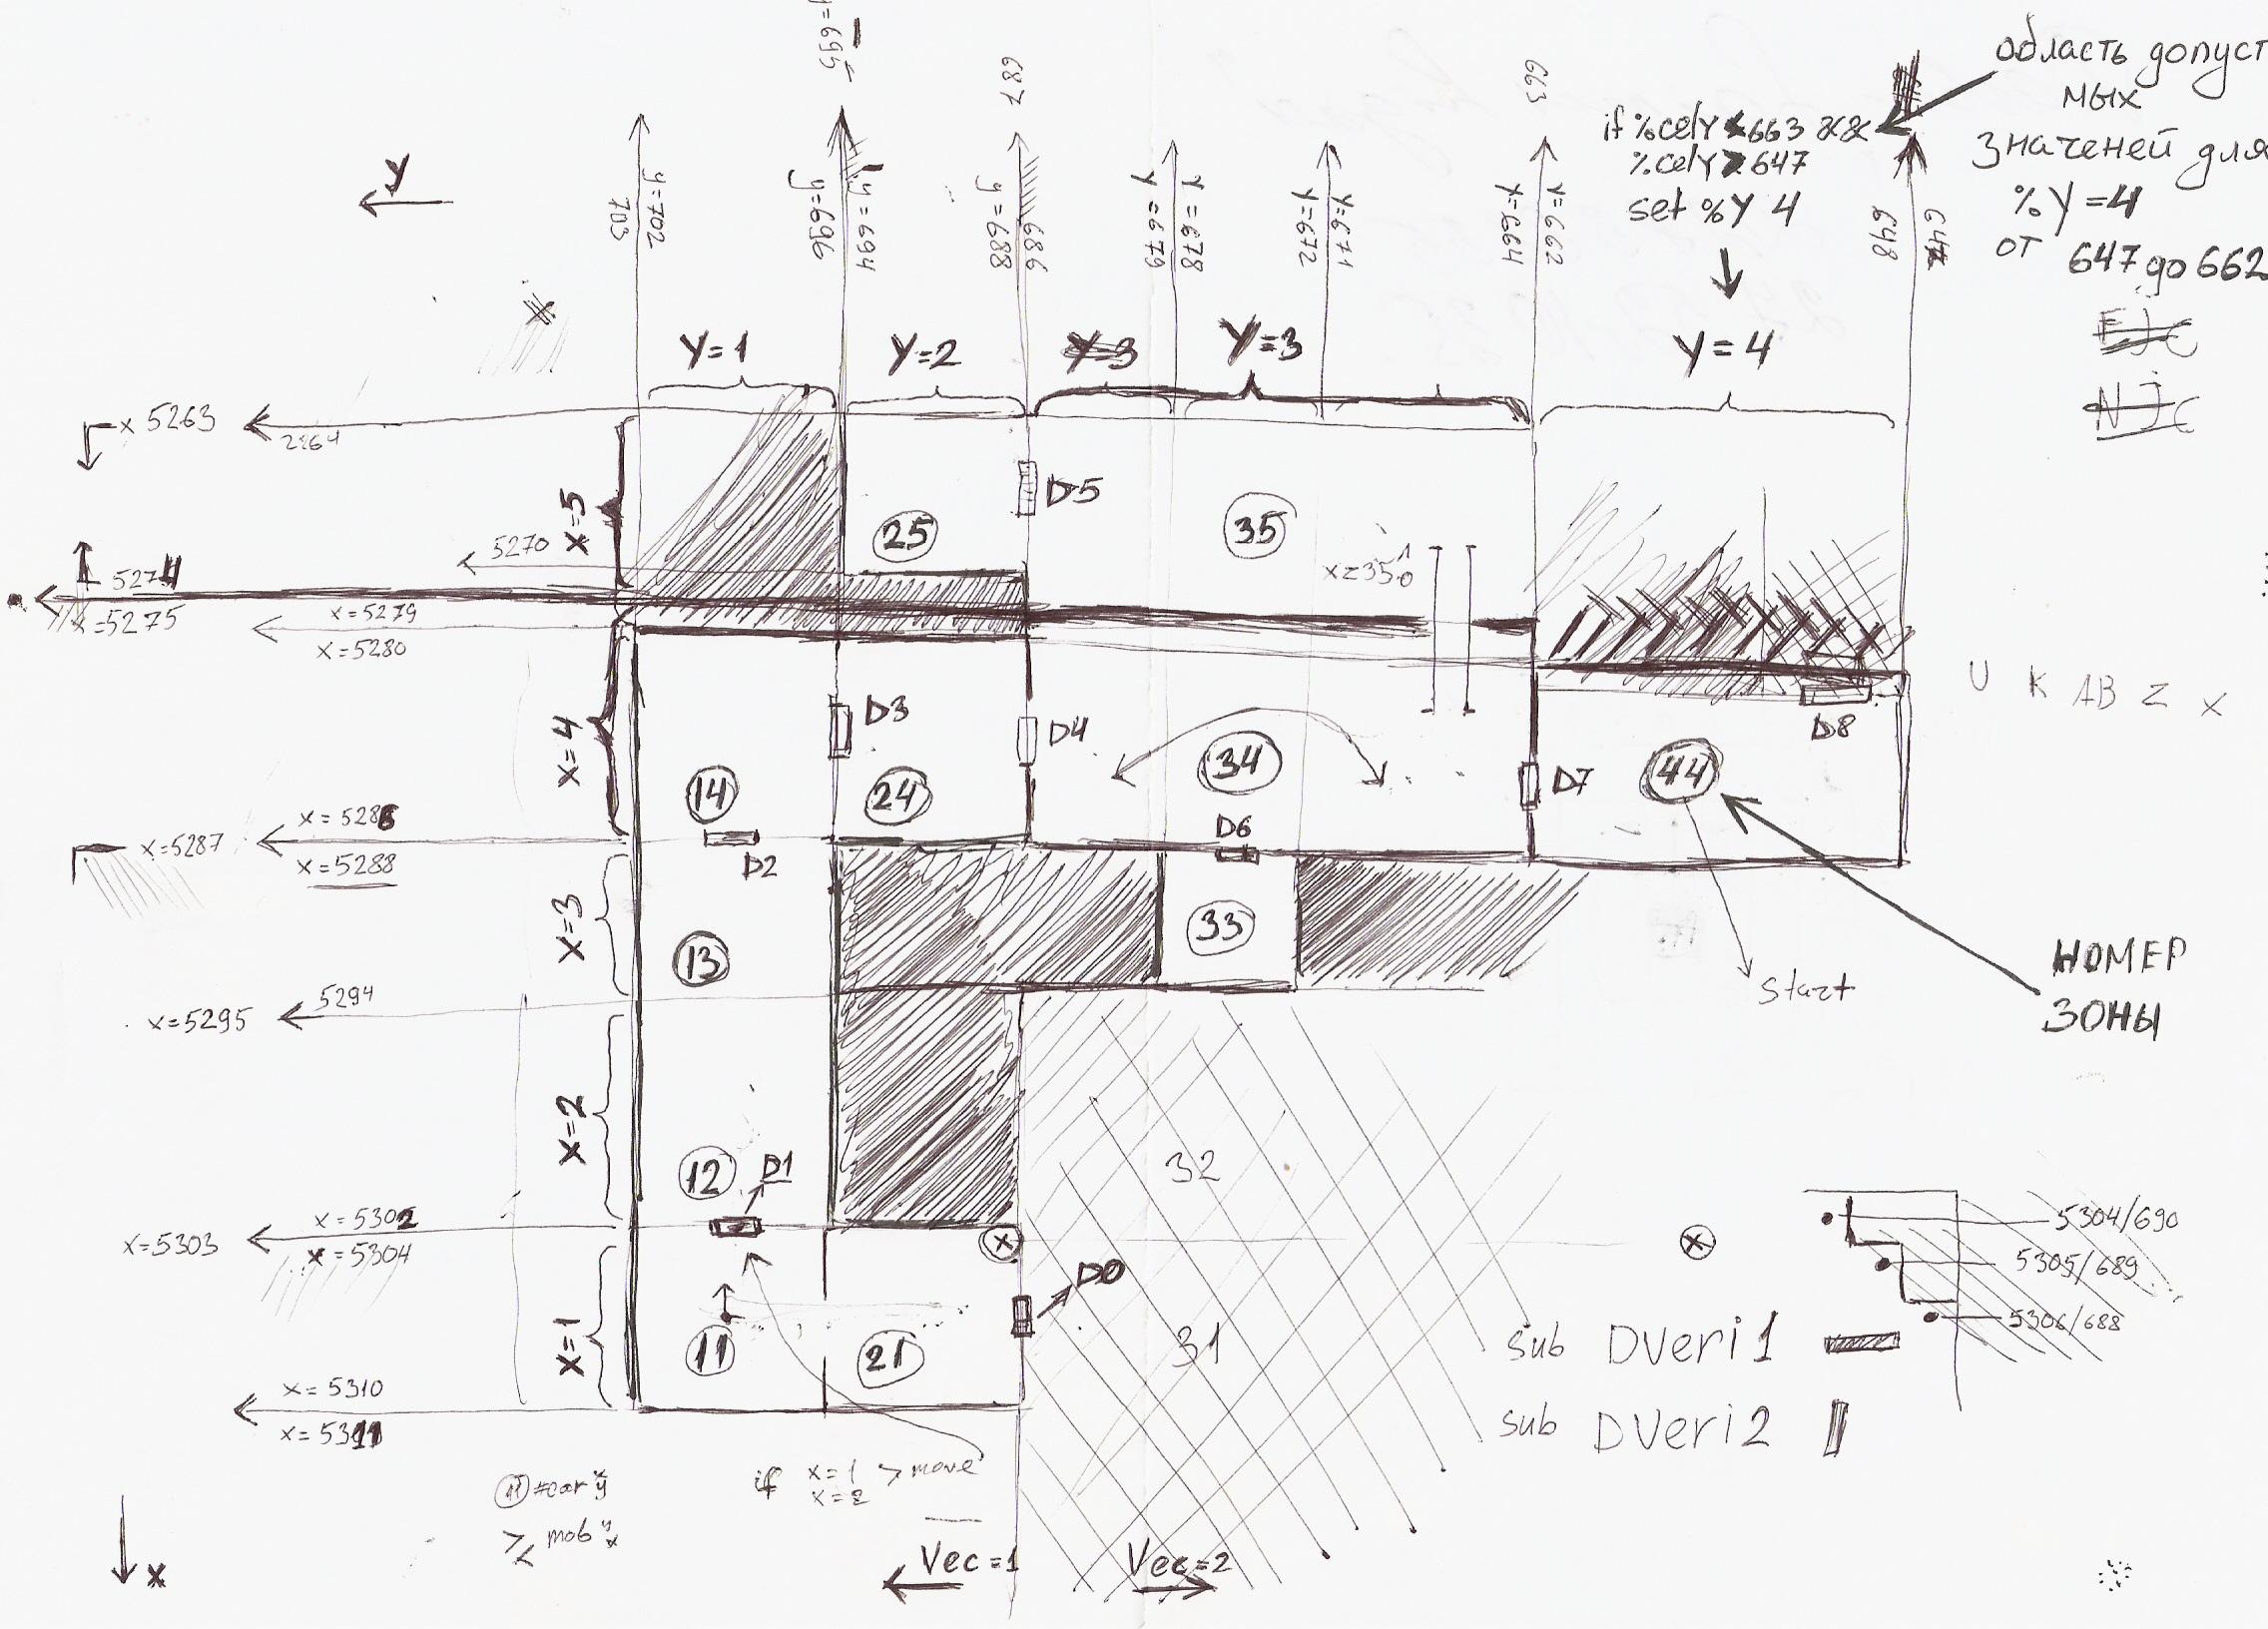 y=695
687
663
область допуст
мых
значеней для
% Y =4
от 647 до 662
if %celY <663 &&
%celY >647
set %Y 4
Y
703
y=702
y=696
y=694
y=688
686
Y=679
Y=678
Y=672
Y=671
Y=664
Y=662
648
Y=1
Y=2
Y=3
Y=3
Y=4
EJC
NJC
x 5263
2264
x=5
25
D5
35
5270
5274
x=5275
x=5279
x=5280
x=350
U K AB Z X
x=4
D3
D4
D7
D8
14
24
34
44
D6
D2
x=5286
x=5287
x=5288
x=3
13
33
start
НОМЕР
ЗОНЫ
5294
x=5295
x=2
12
D1
32
x=5302
x=5303
x=5304
x
x
5304/690
5305/689
5306/688
D0
x=1
11
21
31
sub DVeri1
sub DVeri2
x=5310
x=5311
if x=1 >move
x=2
11
mob y
x
Vec=1
Vec=2
x